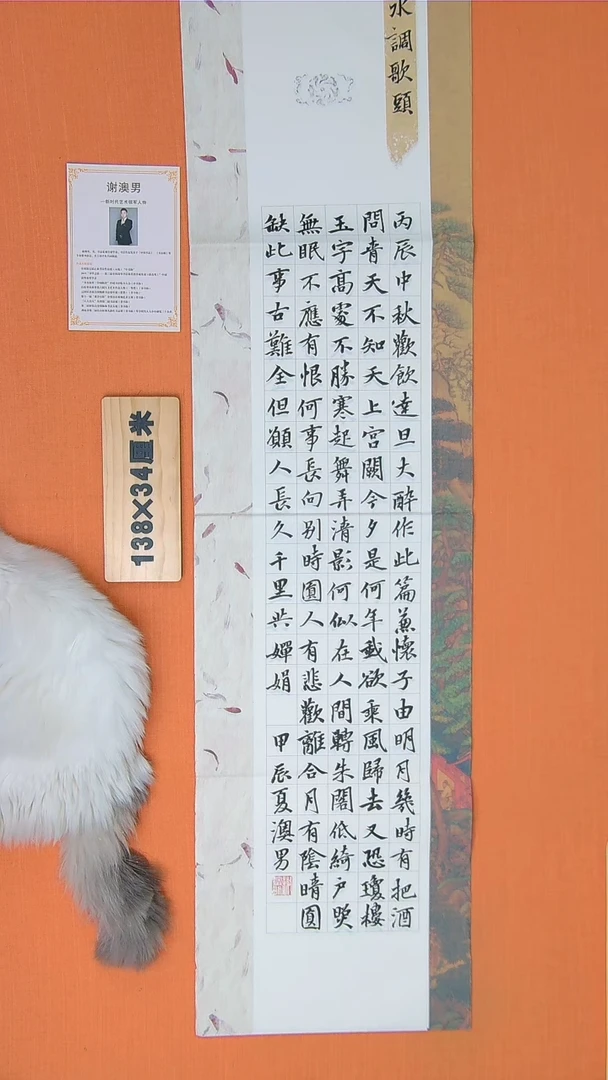 水調歌頭
丙辰中秋歡飲達旦大醉作此篇兼懷子由明月幾時有把酒
問青天不知天上宮闕今夕是何年我欲乘風歸去又恐瓊樓
玉宇高處不勝寒起舞弄清影何似在人間轉朱閣低綺户照
無眠不應有恨何事長向别時圓人有悲歡離合月有陰晴圓
缺此事古難全但願人長久千里共嬋娟
甲辰夏澳男
谢澳男
138×34厘米